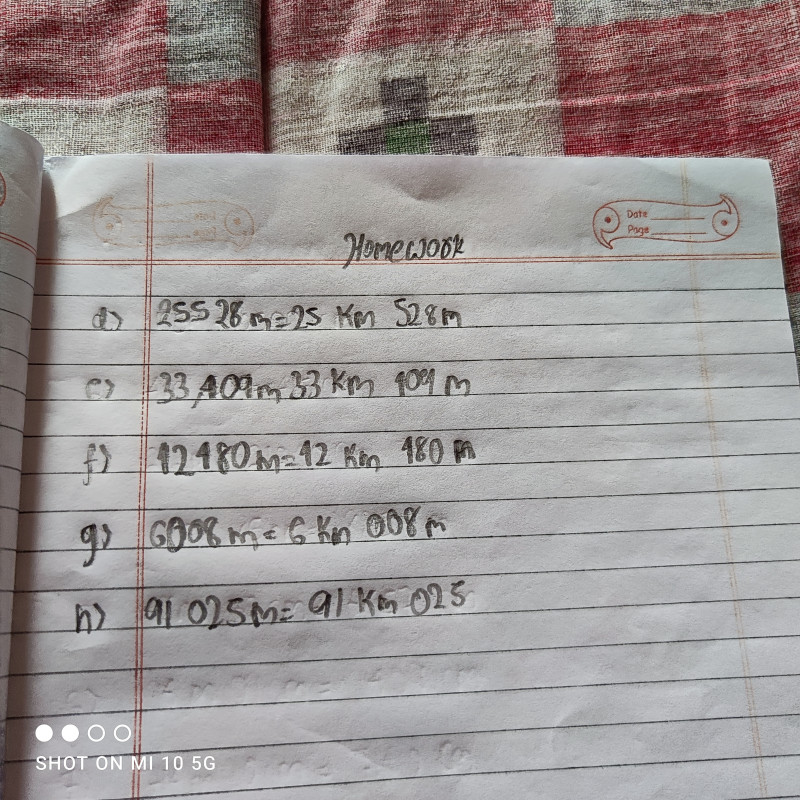 Date
Page
Homework
d) 25528 m = 25 Km 528 m
e) 33,109 m 33 Km 109 m
f) 12180 m = 12 Km 180 m
g) 6008 m = 6 Km 008 m
h) 91 025 m = 91 Km 025
SHOT ON MI 10 5G